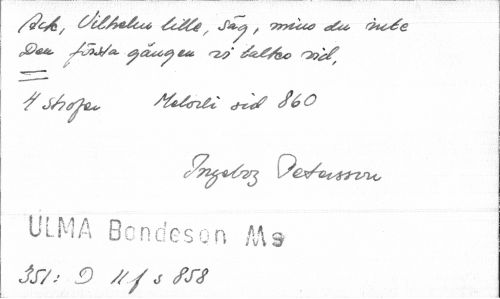 Ack, Vilhelm lille, säg, mins du inte
Den första gången vi taltes vid,
4 strofer Melodi sid 860
Ingeborg Petersson
ULMA Bondeson Ms
351: D 11 f s 858